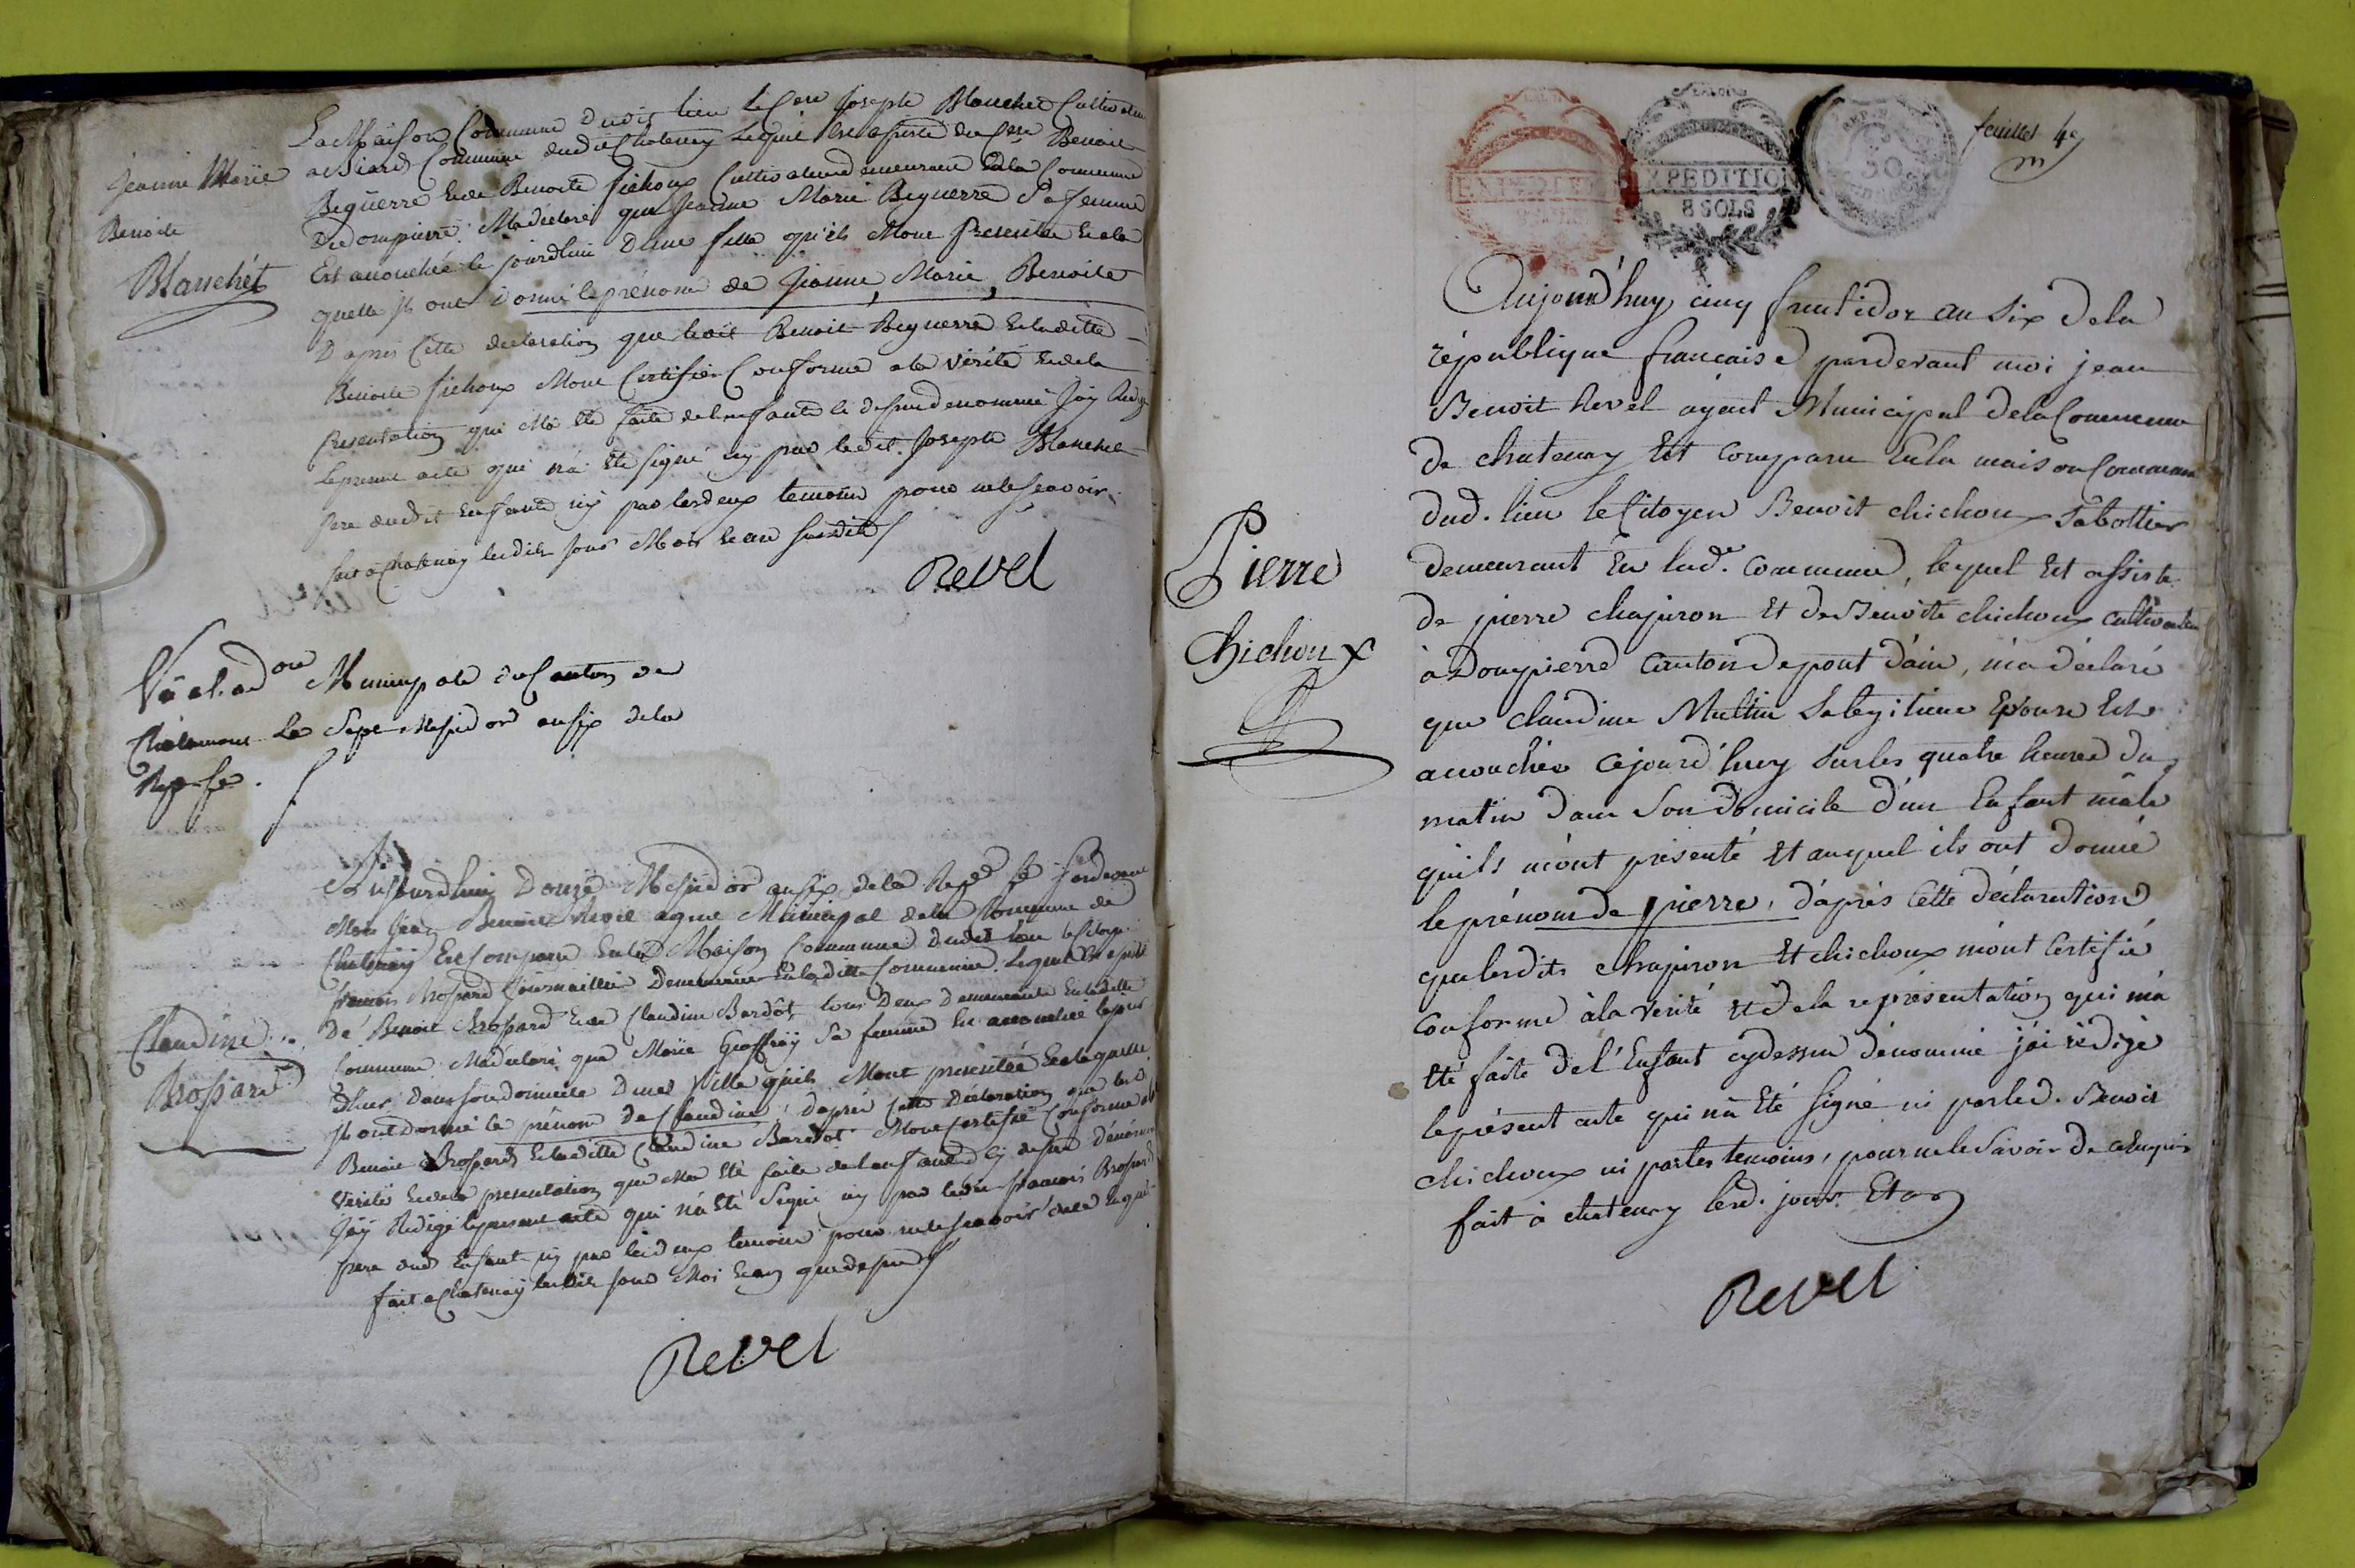 La Maison Commune dudit lieu le Cen Joseph Blanchet Cultivateur
a Biard Commune dudit Chatenay lequel est assisté du Cen Benoit
Beguerre et de Benoite Jichoux Cultivateurs demeurant en la Commune
de dompierre M'a déclaré que Jeanne Marie Beguerre Sa femme
Est accouchée le jourdhui D'une fille qu'ils M'ont Présentée et a la
quelle ils ont donné le prénom de Jeanne, Marie, Benoite
D'apres Cette declaration que ledit Benoit Beguerre et laditte
Benoite Jichoux M'ont Certifiée Conforme a la vérité et de la
Presentation qui M'a été faite de l'enfant ci dessus denommé J'ay Redigé
le present acte qui n'a été signé ny par ledit Joseph Blanchet
pere dudit Enfant ny par les deux temoins pour ne le scavoir
fait a Chatenay lesdits jour Mois et an susdits
Revel
Jeanne Marie
Benoite
Blanchét
Vu a l'adon Municipale du Canton de
Chalamont le Sept Messidor an six de la
Rep. fse.
Aujourdhui Douze Messidor an six de la Rep. fse Pardevant
Moi Jean Benoit Revel agent Municipal de la Commune de
Chatenay Est Comparu en la Maison Commune dudit lieu le Citoyen
françois Brossard Journaillier Demeurant en laditte Commune. Lequel Est assisté
De Benoit Brossard et de Claudine Bardôt tous Deux Demeurants en laditte
Commune M'a déclaré que Marie Geoffray Sa femme est accouchée le jour
d'hier dans son domicile D'une fille qu'ils M'ont présentée et a laquelle
ils ont donné le prénom de Claudine, d'après Cette Déclaration que led.
Benoit Brossard et laditte Claudine Bardot M'ont Certifié Conforme a la
vérité et de la presentation qui M'a été faite de l'enfant cy dessus dénommé
J'ay Rédigé le present acte qui n'a été Signé ny par ledit françois Brossard
pere dud. Enfant ny par les deux temoins pour ne le scavoir de ce Requis
fait a Chatenay lesdits jour Moi et an que dessus
Revel
Claudine
Brossard
feuillet 4e
EXPEDITION
EXPEDITION
8 SOLS
Aujourd'huy cinq fructidor an six de la
république francaise pardevant moi jean
Benoit Revel agent Municipal de la Commune
de chatenay Est comparu En la maison Commune
dud. lieu le Citoyen Benoit chichoux Sabottier
demeurant En lade. commune, lequel Est assisté
de pierre chapuron Et de Benoîte chichoux cultivateurs
à Dompierre Canton de pont d'ain, m'a déclaré
que claudine Multin Sa légitime Epouse Est
accouchée cejourd'huy sur les quatre heures du
matin dans Son domicile d'un Enfant mâle
qu'ils m'ont présenté Et auquel ils ont donné
le prénom de pierre, d'après Cette déclaration
que lesdits chapuron Et chichoux m'ont Certifié
Conforme à la vérité Et de la représentation qui m'a
Eté faite de l'Enfant cydessus dénommé j'ai rédigé
le présent acte qui n'a Eté signé ni par led. Benoit
chichoux ni par les temoins, pour ne le Savoir de ce requis
fait à chatenay lesd. jour Et an
Revel
Pierre
Chichoux